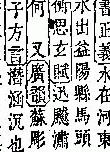 書正義水在河
水出益陽縣馬頭
衡思玄賦迅飈潚
何 又廣韻蘇彫
子方言潛涵沉也